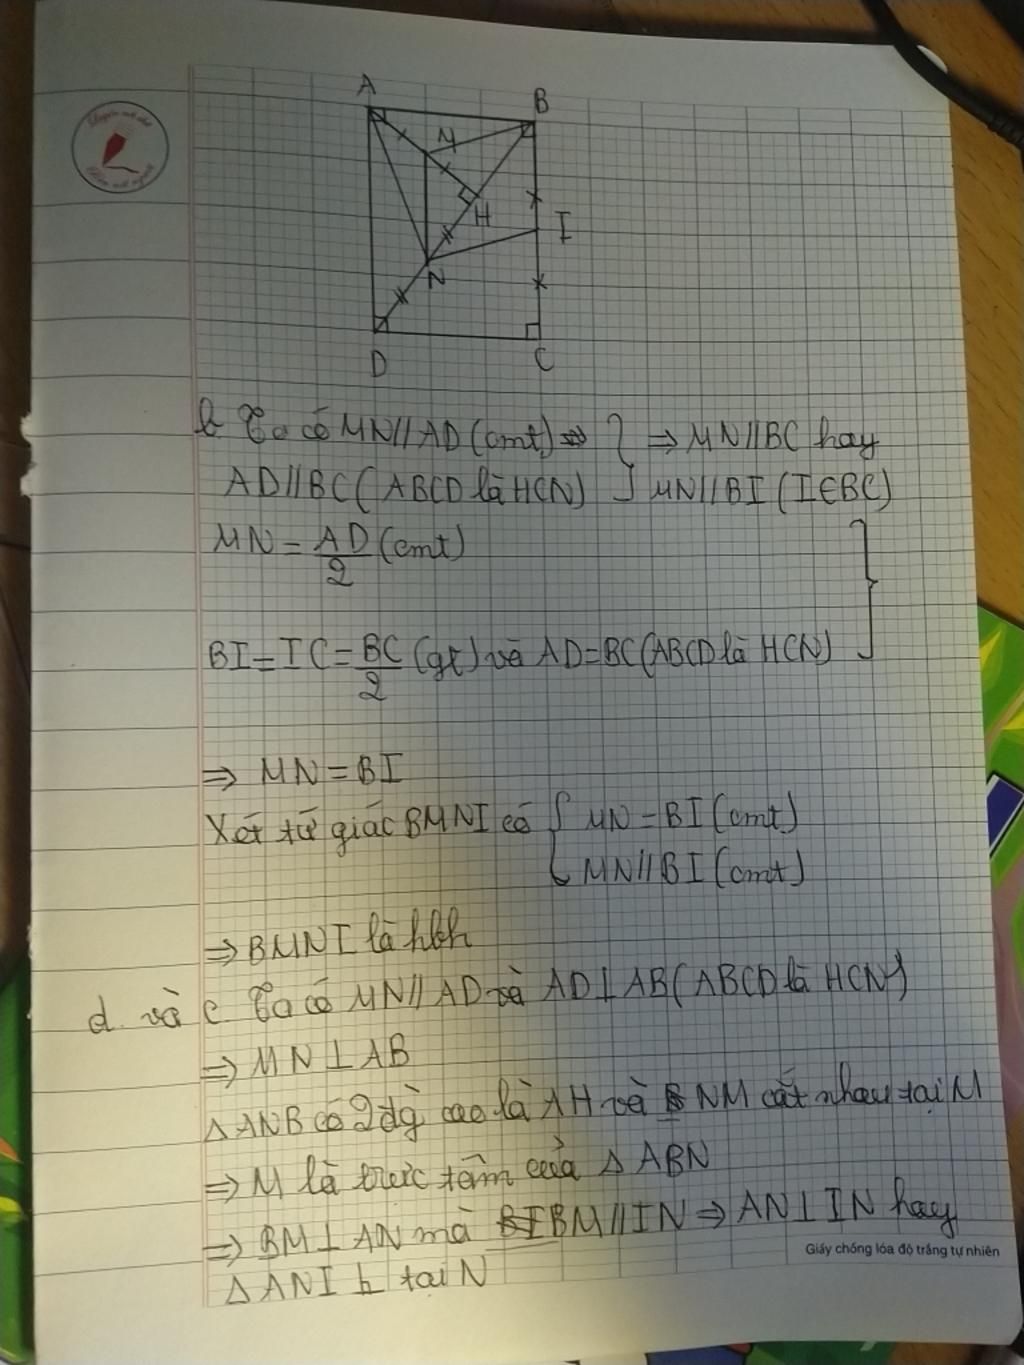 A
B
M
H
I
N
D
C
b Ta có MN//AD (cmt) ⇒ } ⇒ MN//BC hay
AD//BC (ABCD là HCN) } MN//BI (I∈BC)
MN = AD/2 (cmt)
BI = IC = BC/2 (gt) và AD = BC (ABCD là HCN)
⇒ MN = BI
Xét tứ giác BMNI có { MN = BI (cmt)
MN//BI (cmt)
⇒ BMNI là hbh
d. và c Ta có MN//AD và AD⊥AB (ABCD là HCN)
⇒ MN⊥AB
Δ ANB có 2 đg cao là AH và NM cắt nhau tại M
⇒ M là trực tâm của Δ ABN
⇒ BM⊥AN mà BM//IN ⇒ AN⊥IN hay
Giấy chống lóa độ trắng tự nhiên
Δ ANI ⊥ tại N